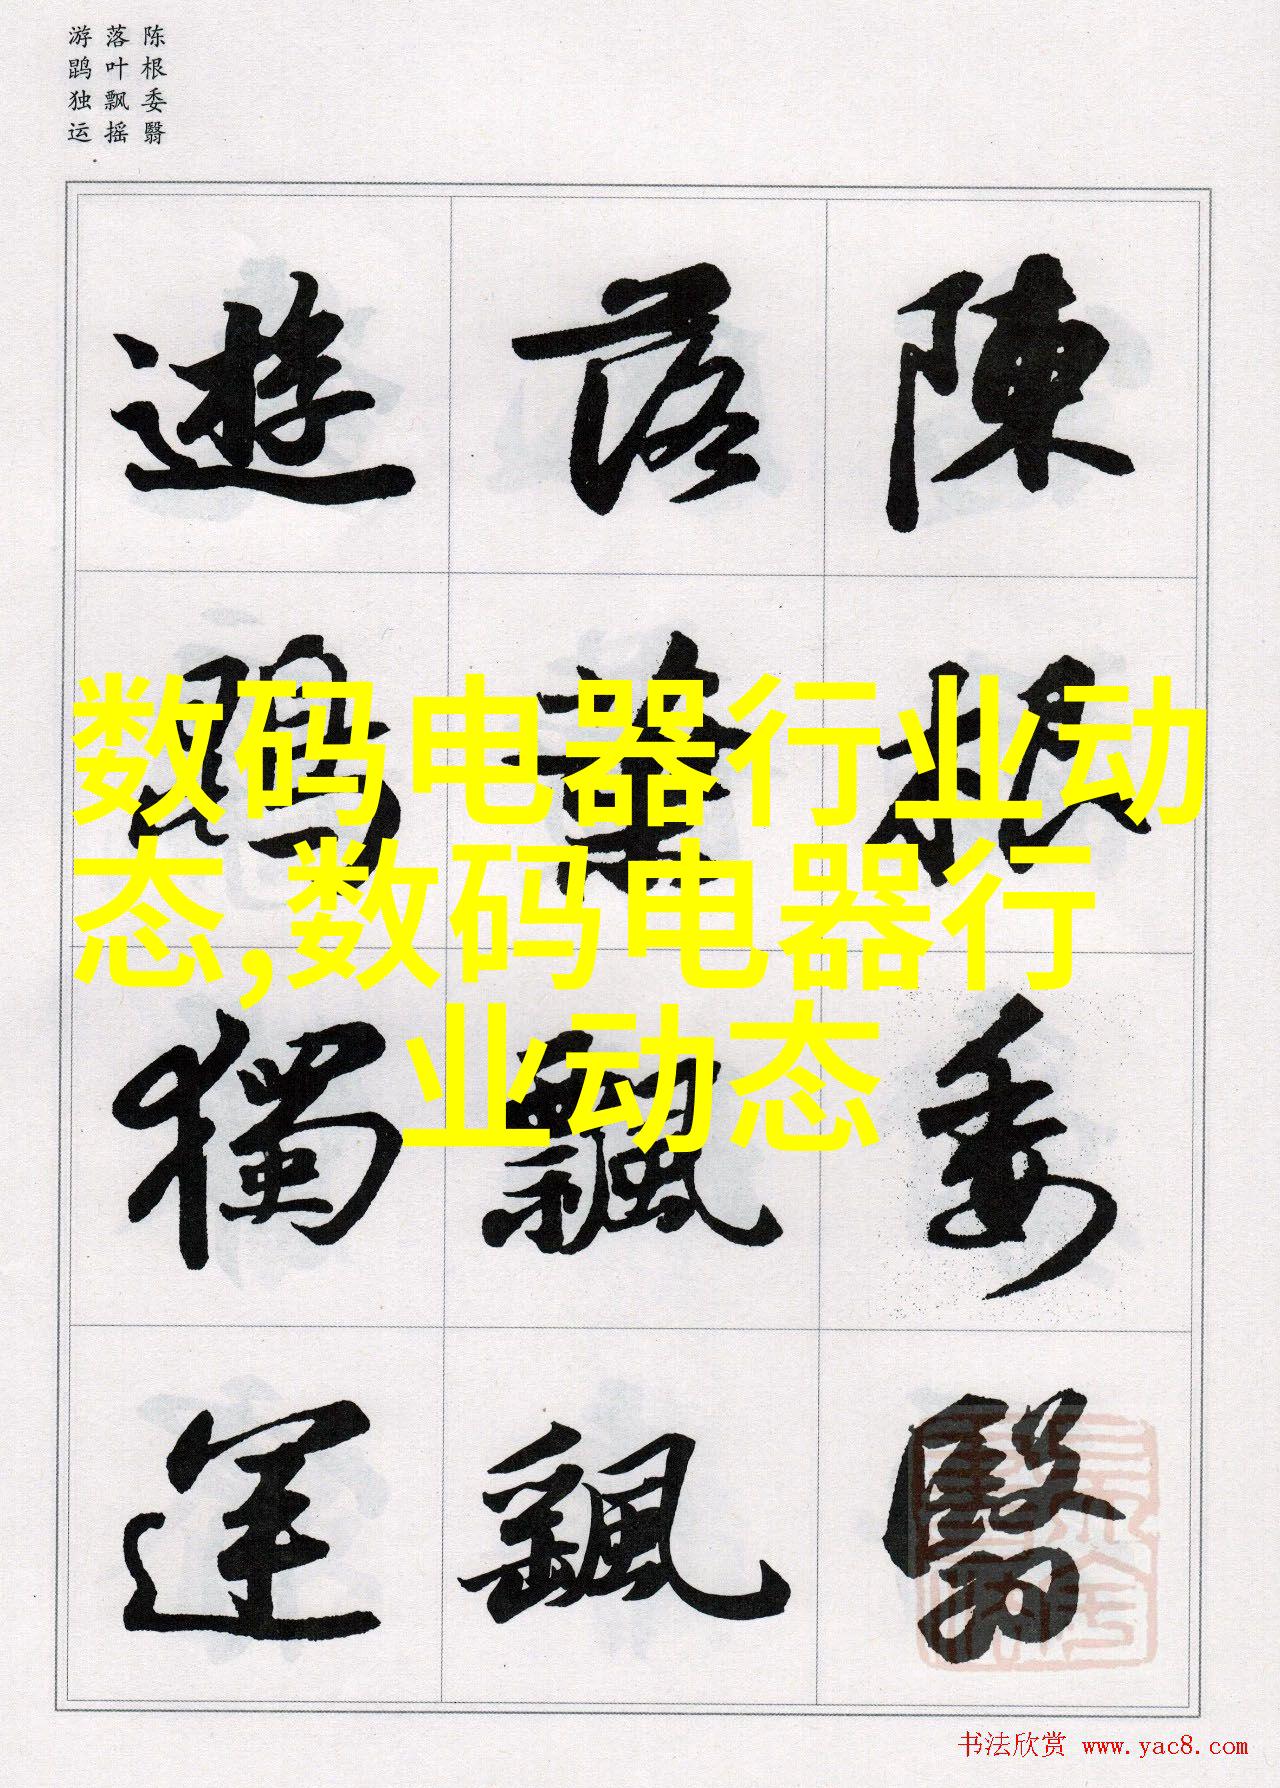 陈根委翳
落叶飘摇
游鹍独运
陳根委翳
落葉飄颻
遊鵾獨運
数码电器行业动
态,数码电器行
业动态
书法欣赏 www.yac8.com